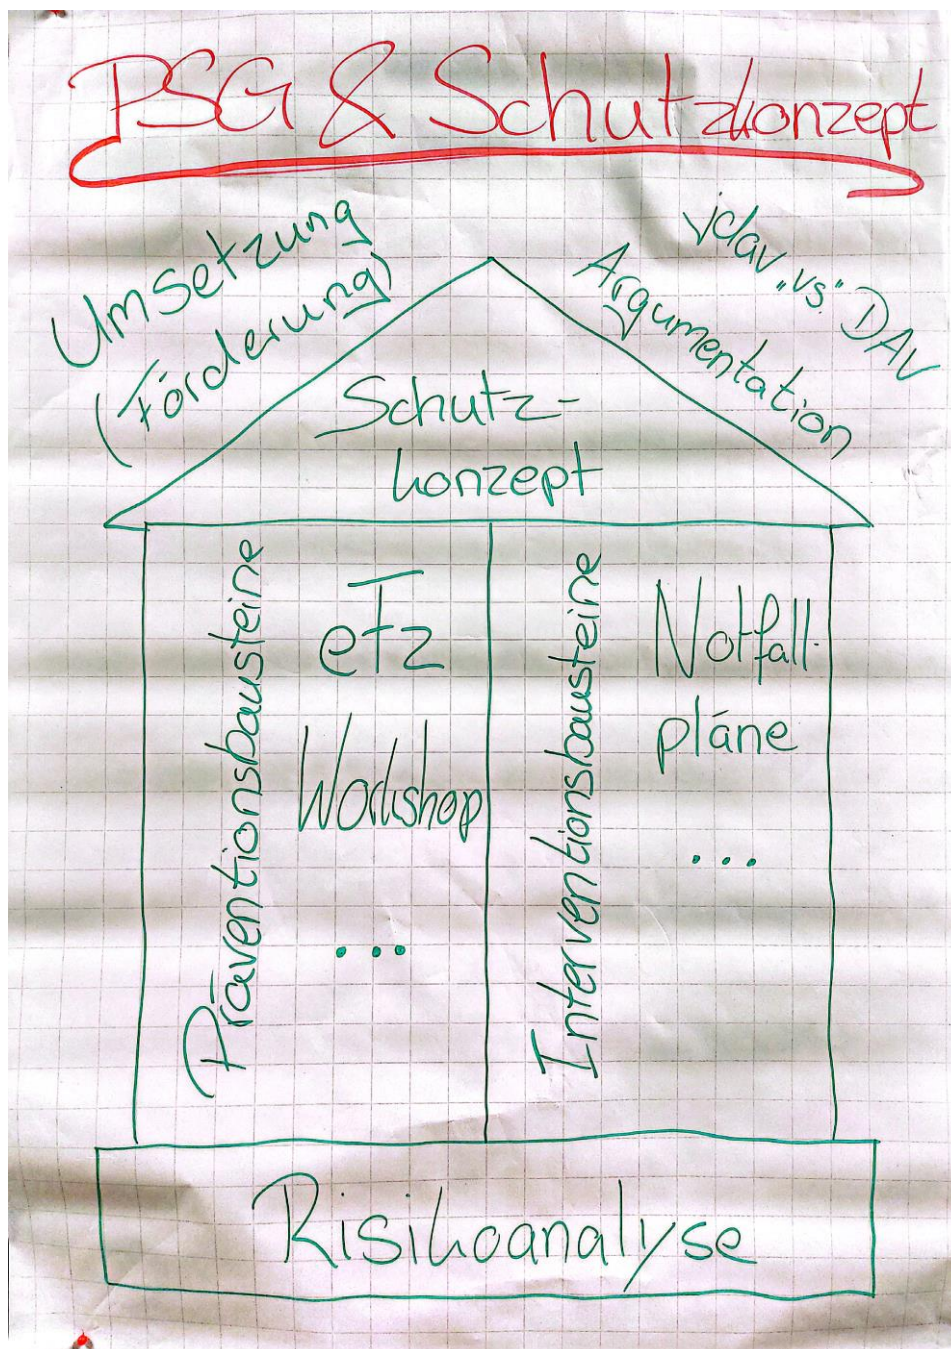 PSG & Schutzkonzept
Umsetzung
(Förderung)
jdav "vs." DAV
Argumentation
Schutz-
konzept
Präventionsbausteine
eFz
Workshop
...
Interventionsbausteine
Notfall-
pläne
...
Risikoanalyse